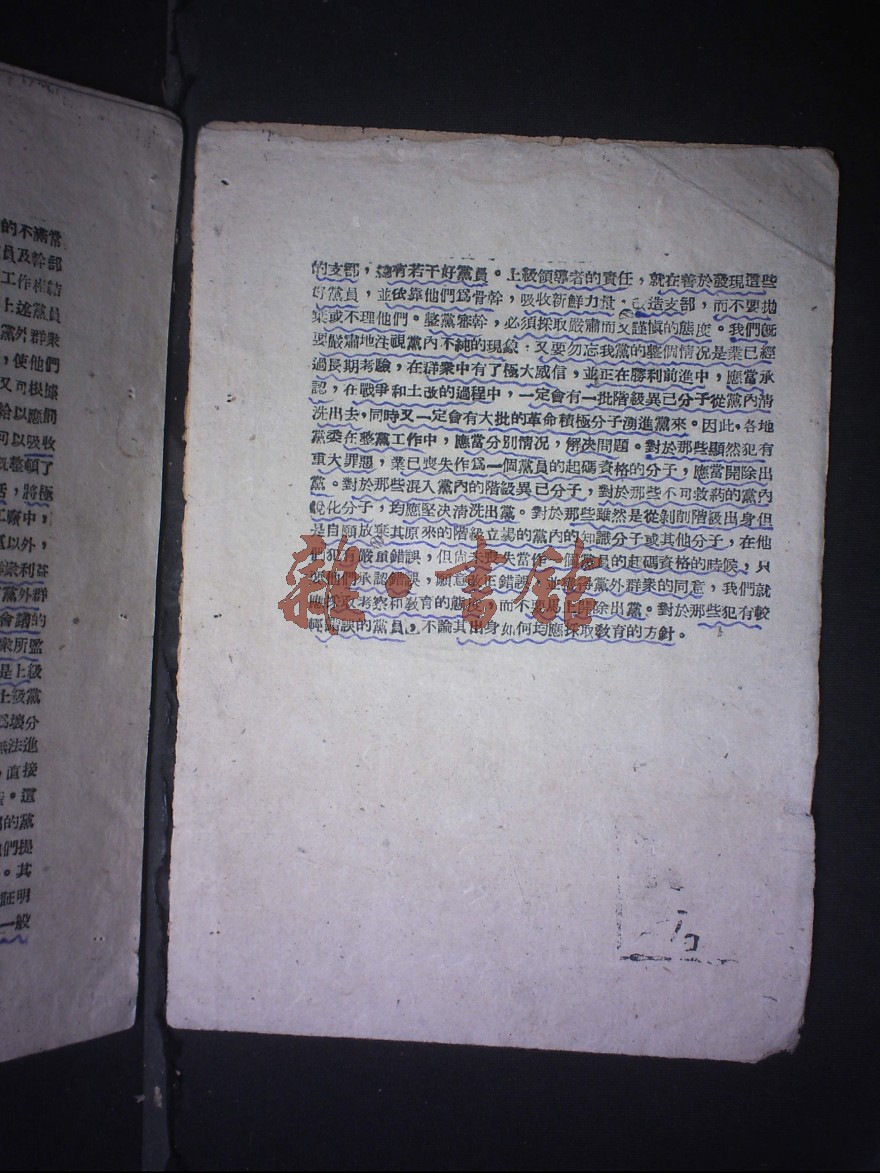 的不滿常
員及幹部
工作總結
上述黨員
黨外群衆
，使他們
又可根據
給以應問
可以吸收
既整頓了
活，將極
工廠中，
以外，
群衆利益
黨外群
會議的
衆所監
是上級
上級黨
爲壞分
無法進
直接
。這
的黨
們提
。其
証明
一般
的支部，總有若干好黨員。上級領導者的責任，就在善於發現這些
好黨員，並依靠他們爲骨幹，吸收新鮮力量，改造支部，而不要拋
棄或不理他們。整黨審幹，必須採取嚴肅而又謹慎的態度。我們旣
要嚴肅地注視黨內不純的現象：又要勿忘我黨的整個情況是業已經
過長期考驗，在群衆中有了極大威信，並正在勝利前進中，應當承
認，在戰爭和土改的過程中，一定會有一批階級異己分子從黨內清
洗出去，同時又一定會有大批的革命積極分子湧進黨來。因此，各地
黨委在整黨工作中，應當分別情況，解決問題。對於那些顯然犯有
重大罪惡，業已喪失作爲一個黨員的起碼資格的分子，應當開除出
黨。對於那些混入黨內的階級異己分子，對於那些不可救葯的黨內
蛻化分子，均應堅決清洗出黨。對於那些雖然是從剝削階級出身但
是自願放棄其原來的階級立場的黨內的知識分子或其他分子，在他
們犯有嚴重錯誤，但尚未喪失當作一個黨員的起碼資格的時候，只
要他們承認錯誤，願意改正錯誤，並獲得黨外群衆的同意，我們就
應採取考察和敎育的態度，而不要馬上開除出黨。對於那些犯有較
輕錯誤的黨員，不論其出身如何均應採取敎育的方針。
雜·書館